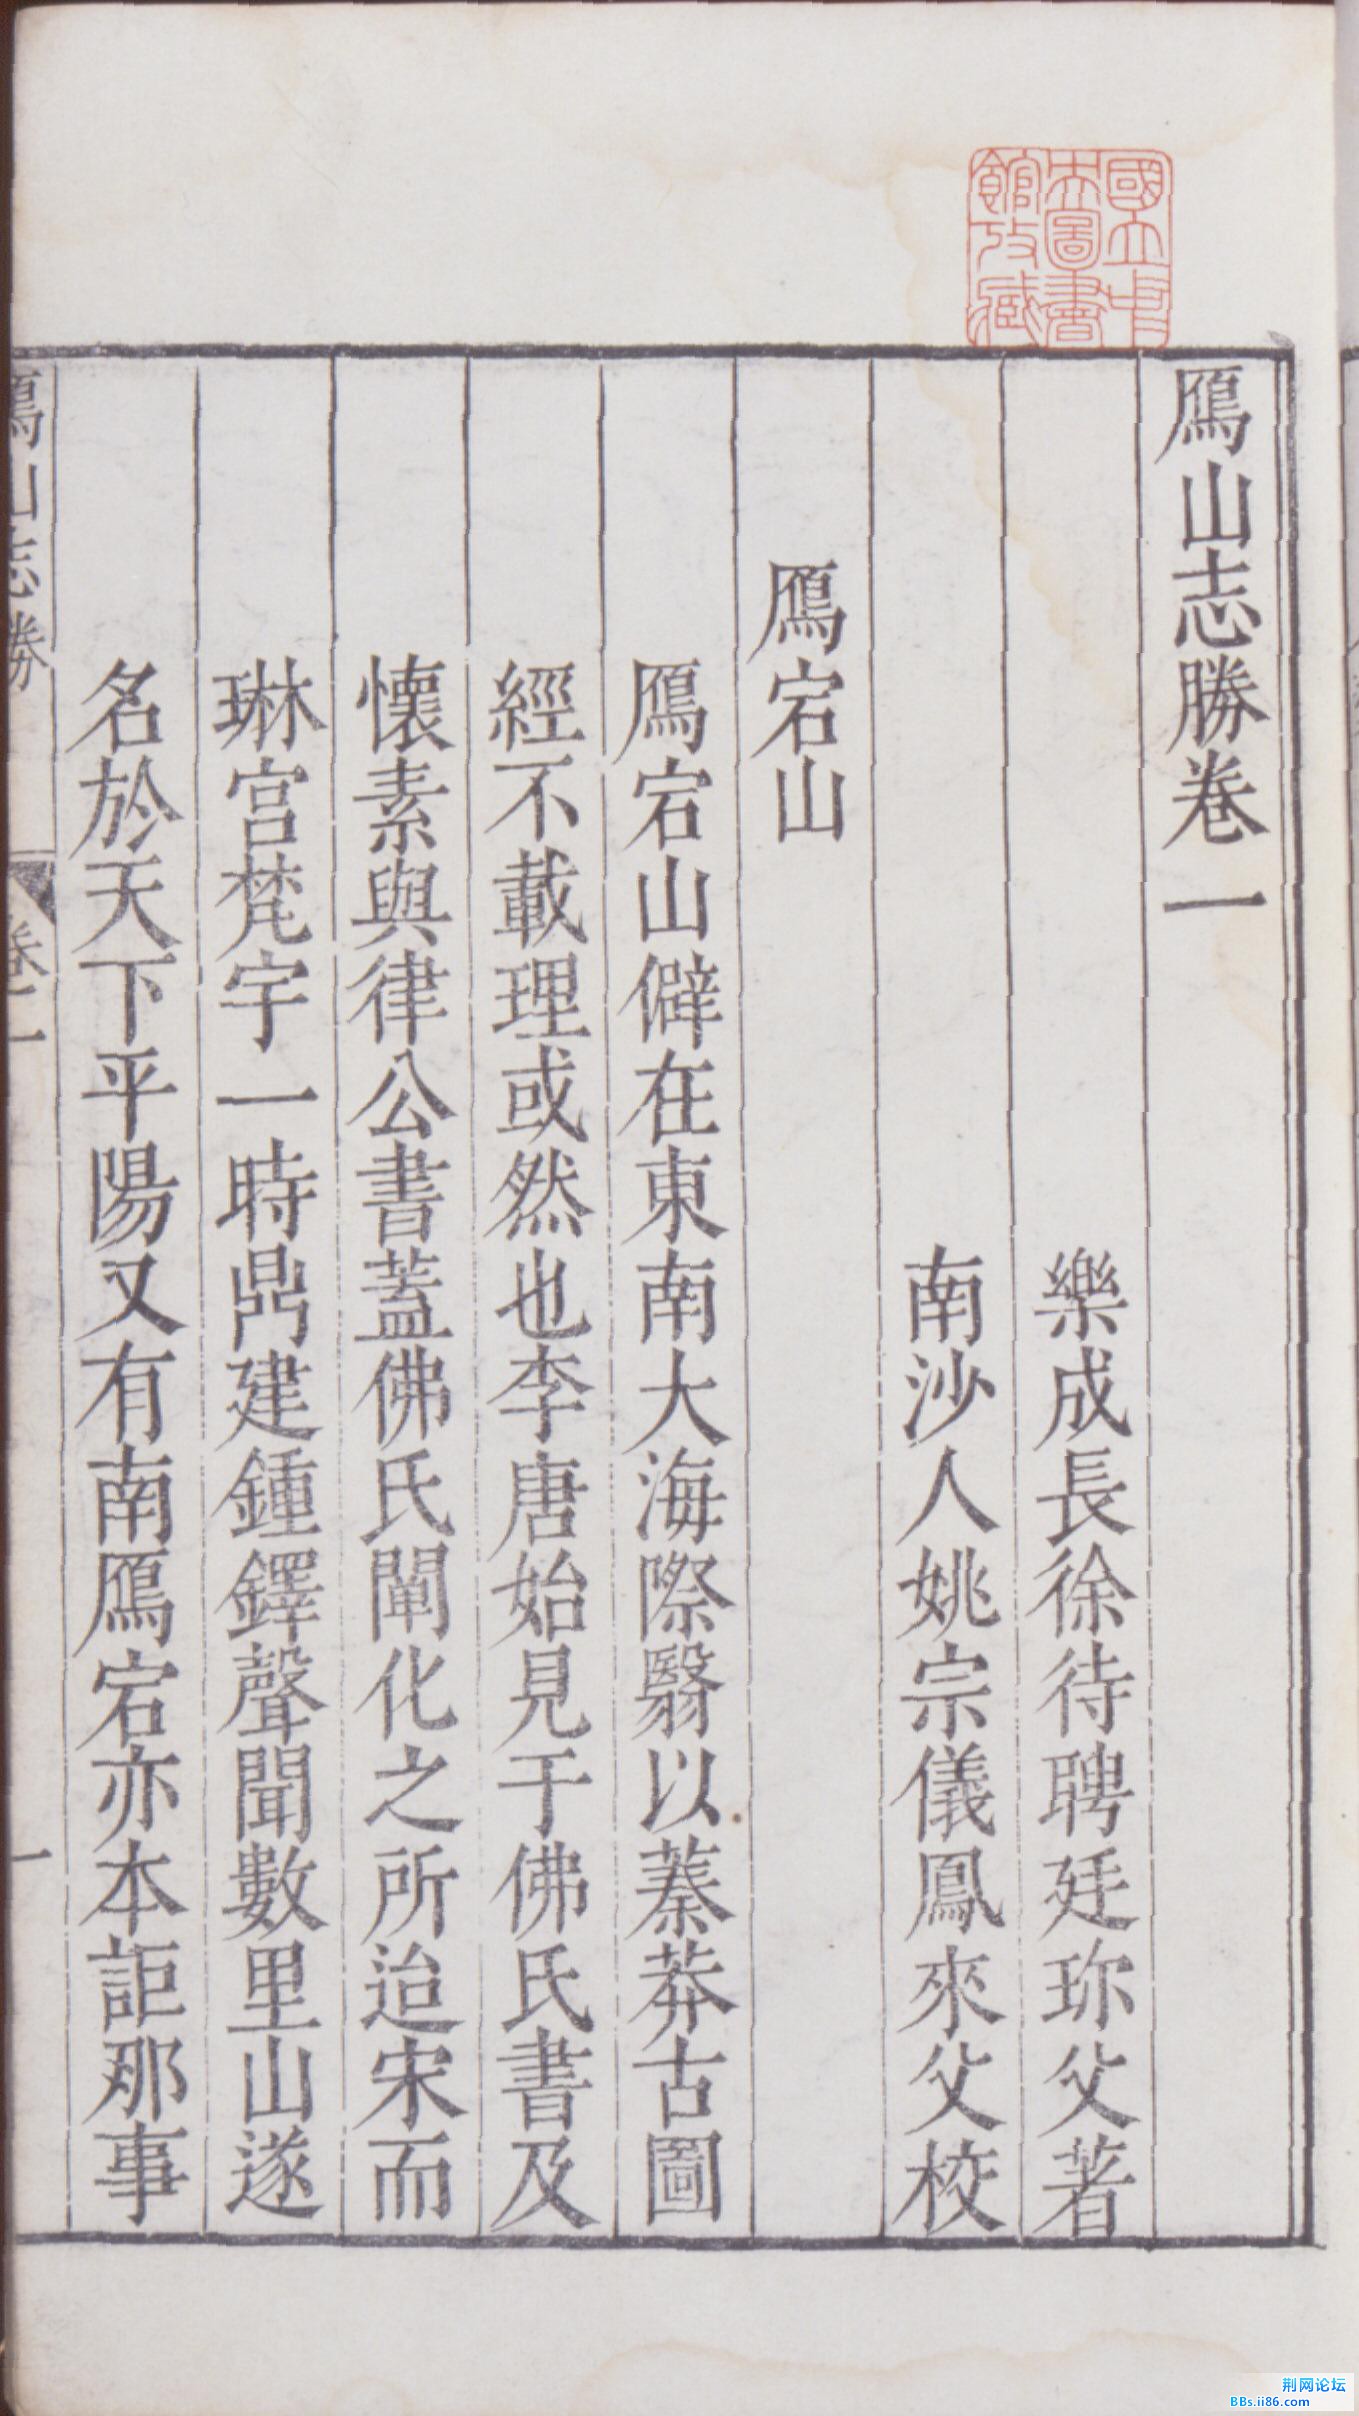 國立中
央圖書
館攷藏
鴈山志勝卷一
樂成長徐待聘廷珎父著
南沙人姚宗儀鳳來父校
鴈宕山
鴈宕山僻在東南大海際翳以蓁莽古圖
經不載理或然也李唐始見于佛氏書及
懷素與律公書蓋佛氏闡化之所迨宋而
琳宮梵宇一時鼎建鍾鐸聲聞數里山遂
名於天下平陽又有南鴈宕亦本詎那事
鴈山志勝
卷一
一
荆网论坛
BBs.ii86.com